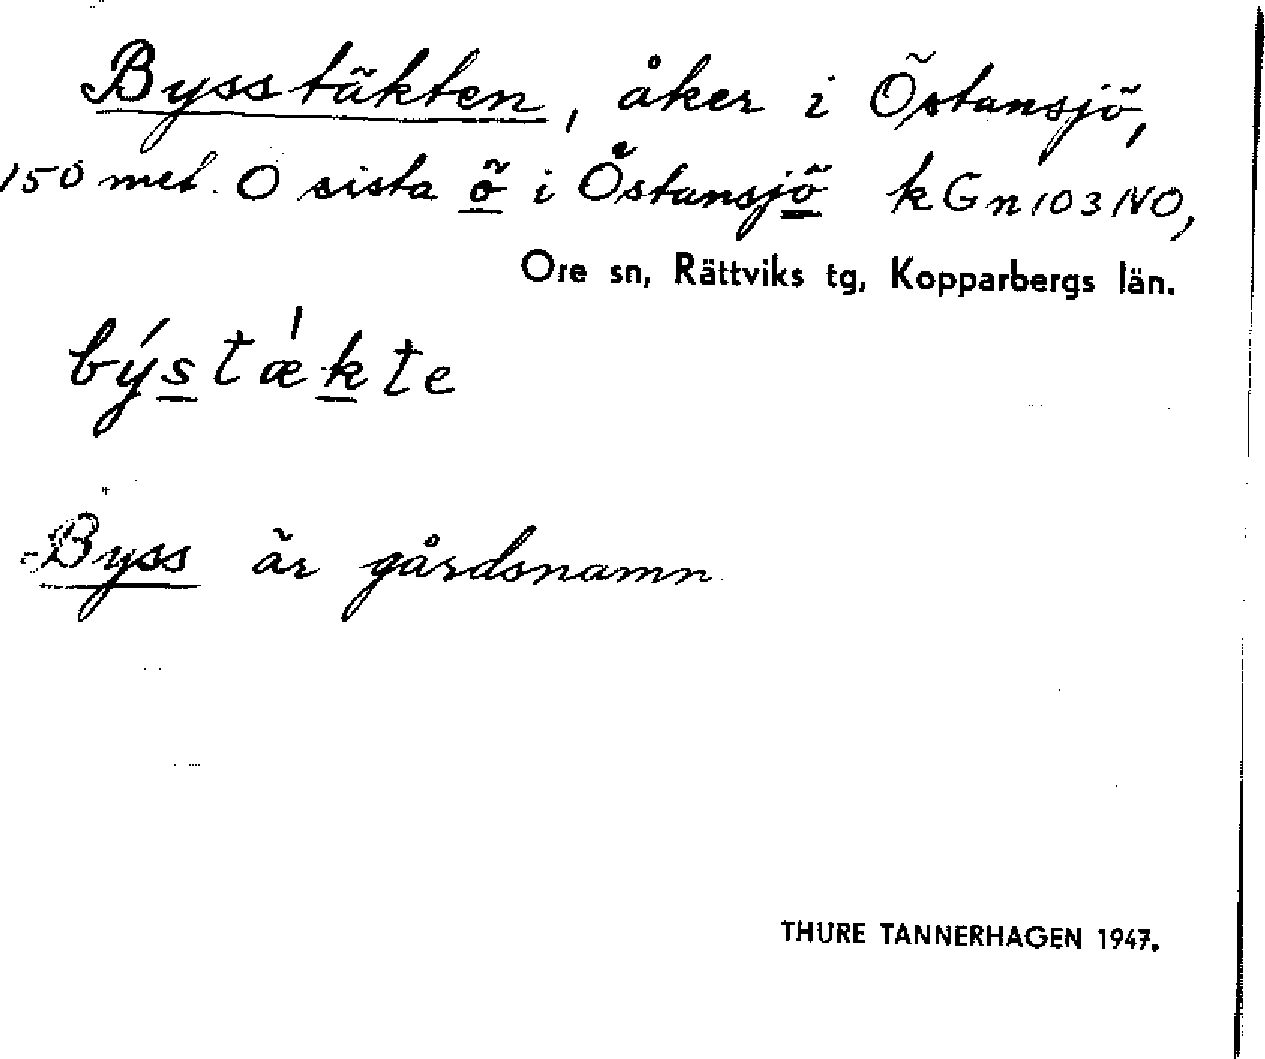 Bysstäkten, åker i Östansjö,
150 met. O sista ö i Östansjö kGn103NO,
Ore sn, Rättviks tg, Kopparbergs län.
býstæ̍kte
Byss är gårdsnamn
THURE TANNERHAGEN 1947.